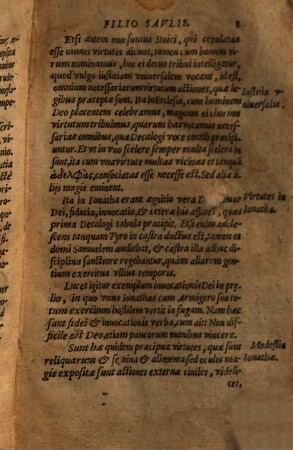 FILIO SAVLIS.
Etsi autem non sumus Stoici, qui copulatas
esse omnes virtutes dicunt, tamen cum bonum vi-
rum nominamus, hoc ei decus tribui intelligitur,
quod vulgo iustitiam vniuersalem vocant, id est,
omnium necessariarum virtutum actiones, quæ le-
gibus præcepta sunt. Ita in Ecclesia, cum hominem
Deo placentem celebramus, magnum ei chorum
virtutum tribuimus, quarum harum vocamus neces-
sarias omnibus, quæ Decalogi voce omnib. præcipi-
untur. Et vt in vno scelere semper multa scelera in
sunt, ita cum vna virtute multas vicinas et tanquam
ἀδελφὰς, consociatas esse necesse est. Sed alia a-
lijs magis eminent.
Ita in Ionatha erant agnitio vera Dei, timor
Dei, fiducia, inuocatio, & cetera his affines, quas
prima Decalogi tabula præcipit. Etsi enim adole-
scens tanquam Tyro in castra ductus est, tamen et
domi Samuelem audiebat, & castra illa adhuc di-
sciplina sanctiore regebantur, quam aliarum gen-
tium exercitus vllius temporis.
Lucet igitur exemplum inuocationis Dei in prę-
lio, in quo vnus Ionathas cum Armigero suo to-
tum exercitum hostilem vertit in fugam. Nam hæc
sunt fidei & inuocationis verba, cum ait: Non dif-
ficile est Deo, etiam paucorum manibus vincere.
Sunt hæ quidem præcipuæ virtutes, quæ sunt
reliquarum & semina & alimenta sed oculis ma-
gis expositæ sunt actiones externæ ciuiles, videli-
cet,
Iustitia v-
niuersalis.
Virtutes in
Ionatha.
Modestia
Ionathæ.